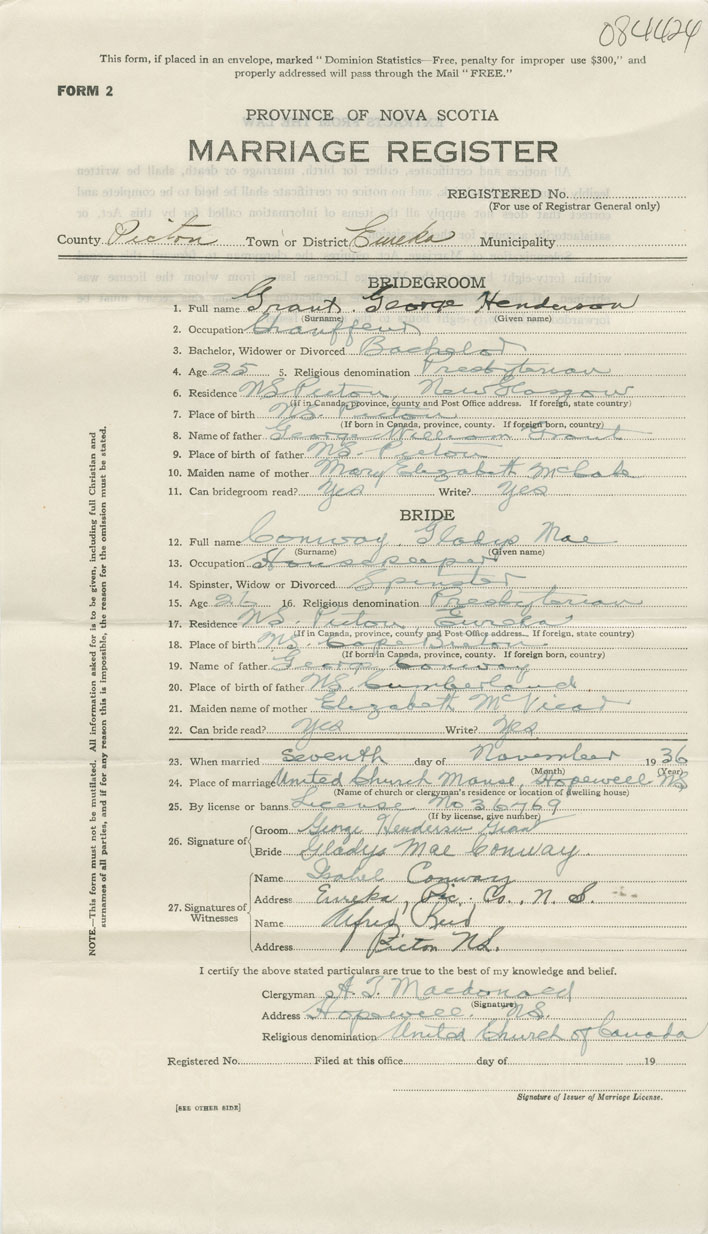 084424
This form, if placed in an envelope, marked "Dominion Statistics—Free, penalty for improper use $300," and
properly addressed will pass through the Mail "FREE."
FORM 2
PROVINCE OF NOVA SCOTIA
MARRIAGE REGISTER
REGISTERED No.
(For use of Registrar General only)
County Picton Town or District Eureka Municipality
BRIDEGROOM
1. Full name Grant George Henderson
(Surname) (Given name)
2. Occupation Chauffeur
3. Bachelor, Widower or Divorced Bachelor
4. Age 25 5. Religious denomination Presbyterian
6. Residence NS. Picton, New Glasgow
(If in Canada, province, county and Post Office address. If foreign, state country)
7. Place of birth NS. Picton
(If born in Canada, province, county. If foreign born, country)
8. Name of father George William Grant
9. Place of birth of father NS. Picton
10. Maiden name of mother Mary Elizabeth McCabe
11. Can bridegroom read? Yes Write? Yes
BRIDE
12. Full name Conway Gladys Mae
(Surname) (Given name)
13. Occupation Housekeeper
14. Spinster, Widow or Divorced Spinster
15. Age 26 16. Religious denomination Presbyterian
17. Residence NS. Picton Eureka
(If in Canada, province, county and Post Office address. If foreign, state country)
18. Place of birth NS. Cape Breton
(If born in Canada, province, county. If foreign born, country)
19. Name of father George Conway
20. Place of birth of father NS. Cumberland
21. Maiden name of mother Elizabeth McVicar
22. Can bride read? Yes Write? Yes
23. When married Seventh day of November 1936
(Month) (Year)
24. Place of marriage United Church Manse, Hopewell NS
(Name of church or clergyman's residence or location of dwelling house)
25. By license or banns License No 36769
(If by license, give number)
26. Signature of
Groom George Henderson Grant
Bride Gladys Mae Conway.
27. Signatures of Witnesses
Name Isabel Conway
Address Eureka, Pic. Co., N. S.
Name Alfred
Address Picton NS.
I certify the above stated particulars are true to the best of my knowledge and belief.
Clergyman A. T. Macdonald
(Signature)
Address Hopewell. NS.
Religious denomination United Church of Canada
Registered No. Filed at this office day of 19
Signature of Issuer of Marriage License.
[SEE OTHER SIDE]
NOTE.—This form must not be mutilated. All information asked for is to be given, including full Christian and
surnames of all parties, and if for any reason this is impossible, the reason for the omission must be stated.